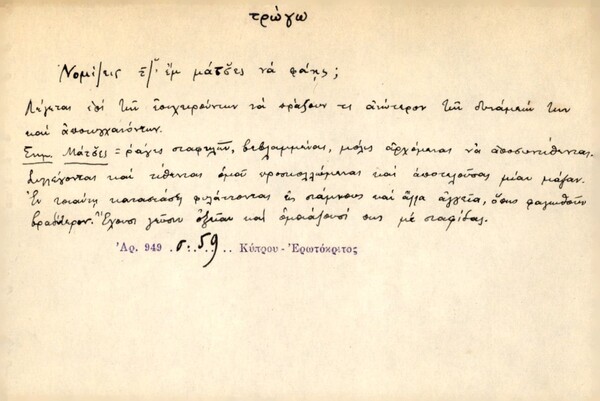 τρώγω
Νομίζεις ἔν μάτσες νὰ φάῃς;
Λέγεται ἐπὶ τῶν ἐπιχειρούντων νὰ πράξουν τι ἀνώτερον τῶν δυνάμεών των
καὶ ἀποτυγχανόντων.
Σημ. Μάτσες = ρᾶγες σταφυλῶν, βεβλαμμέναι, μόλις ἀρχόμεναι νὰ ἀποσυντίθενται.
Συλλέγονται καὶ τίθενται ὁμοῦ προσκολλώμεναι καὶ ἀποτελοῦσαι μίαν μᾶζαν.
Ἐν τοιαύτῃ καταστάσῃ φυλάττονται ἐν στάμνους καὶ ἄλλα ἀγγεῖα, ὅπως φαγωθοῦν
βραδύτερον. Ἔχουσι γεῦσιν ὀξεῖαν καὶ ὁμοιάζουσί πως μὲ σταφίδας.
Ἀρ. 949 σ. 59 Κύπρου - Ἐρωτόκριτος